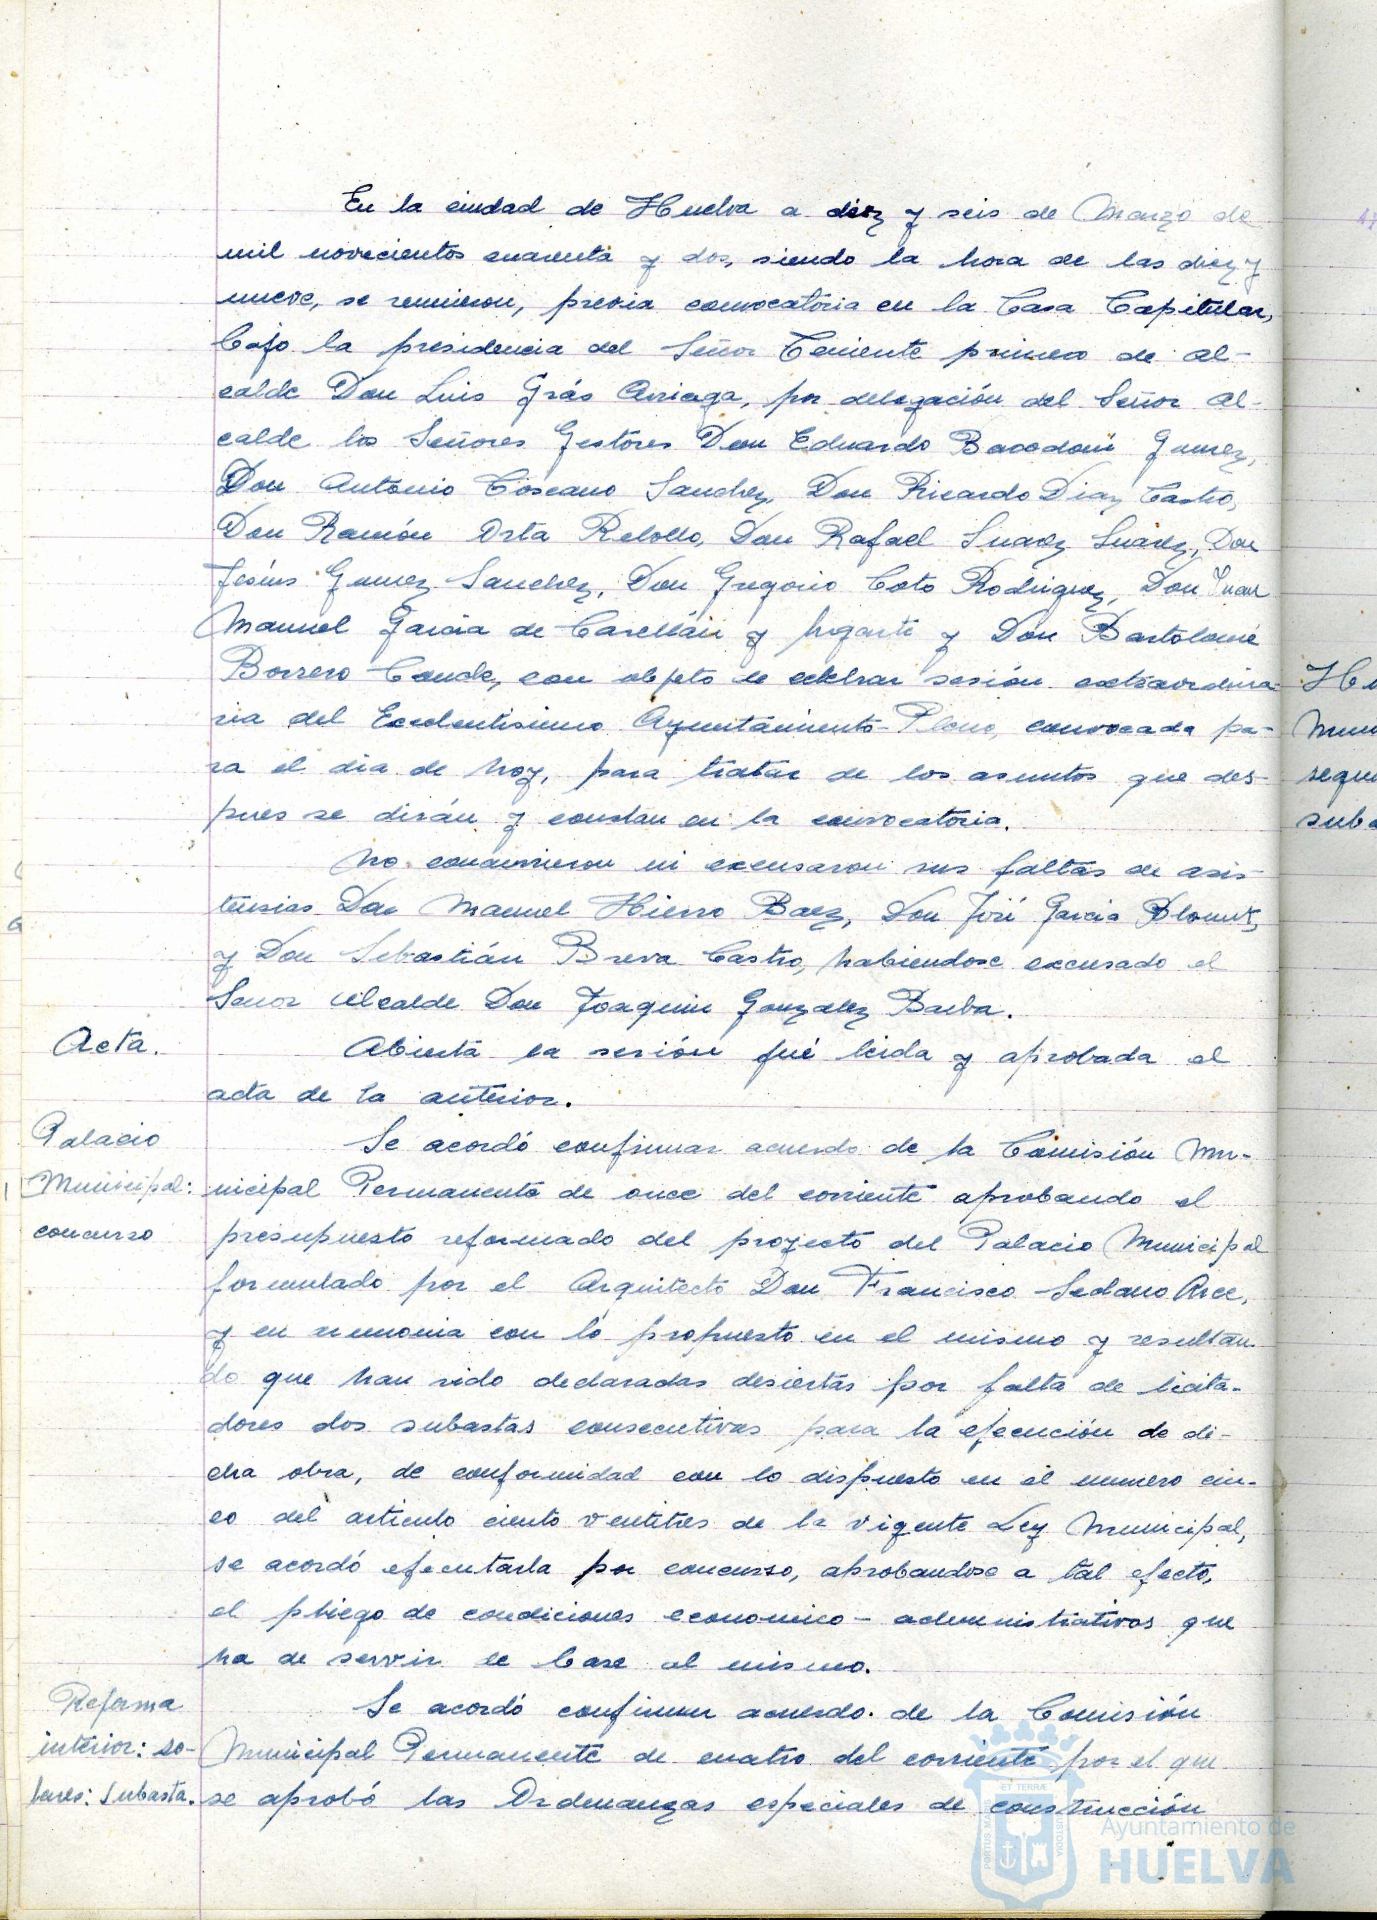 En la ciudad de Huelva a diez y seis de Marzo de
mil novecientos cuarenta y dos, siendo la hora de las diez y
nueve, se reunieron, previa convocatoria en la Casa Capitular,
bajo la presidencia del Señor Teniente primero de Al-
calde Don Luis Grás Arriaga, por delegación del Señor Al-
calde los Señores Gestores Don Eduardo Gumez,
Don Antonio Toscano Sanchez, Don Ricardo Diaz Castro,
Don Ramón Orta Rebollo, Don Rafael Suarez Suárez, Don
Jesús Gumez Sanchez, Don Gregorio Coto Rodriguez, Don Juan
Manuel Garcia de Castellán y Ungarti y Don Bartolomé
Borrero Conde, con objeto de celebrar sesión extraordina-
ria del Excelentisimo Ayuntamiento-Pleno, convocada pa-
ra el dia de hoy, para tratar de los asuntos que des-
pues se dirán y constan en la convocatoria.
No concurrieron ni excusaron sus faltas de asis-
tencias Don Manuel Hierro Baez, Don José Garcia
y Don Sebastián Breva Castro, habiendose excusado el
Señor Alcalde Don Joaquin Gonzalez Barba.
Acta.
Abierta la sesión fué leida y aprobada el
acta de la anterior.
Palacio
Municipal:
concurso
Se acordó confirmar acuerdo de la Comisión Mu-
nicipal Permanente de once del corriente aprobando el
presupuesto reformado del proyecto del Palacio Municipal
formulado por el Arquitecto Don Francisco Sedano Arce,
y en armonia con lo propuesto en el mismo y resultan-
do que han sido declaradas desiertas por falta de licita-
dores dos subastas consecutivas para la ejecución de di-
cha obra, de conformidad con lo dispuesto en el numero cin-
co del articulo ciento ventitres de la vigente Ley Municipal,
se acordó ejecutarla por concurso, aprobandose a tal efecto,
el pliego de condiciones economico-administrativas que
ha de servir de base al mismo.
Reforma
interior: so-
lares: Subasta.
Se acordó confirmar acuerdo de la Comisión
Municipal Permanente de cuatro del corriente por el que
se aprobó las Ordenanzas especiales de construcción
Ayuntamiento de
HUELVA